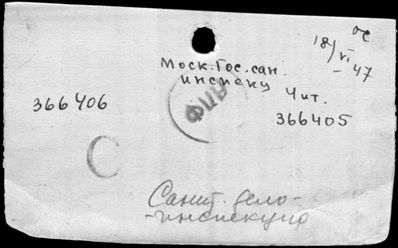 ос
18/VI-47
Моск. Гос. сан.
инспекц
Чит.
366406
366405
С
Санит. дело-
-инспекция